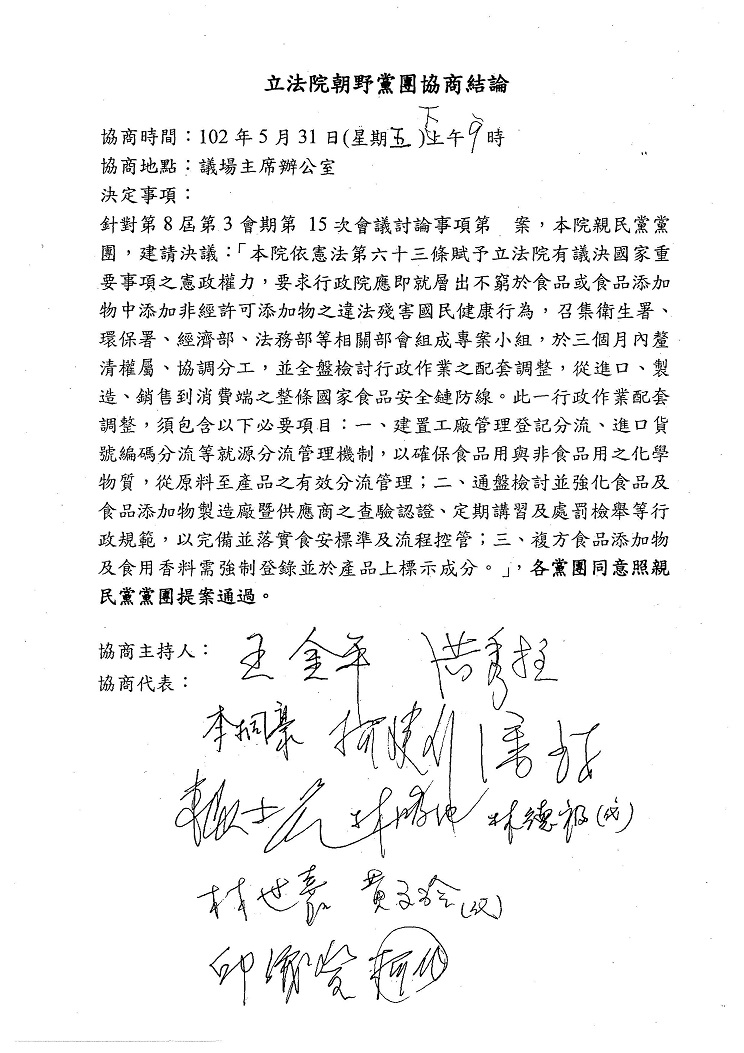 立法院朝野黨團協商結論
協商時間：102 年 5 月 31 日(星期五)下上午9時
協商地點：議場主席辦公室
決定事項：
針對第 8 屆第 3 會期第 15 次會議討論事項第 案，本院親民黨黨
團，建請決議：「本院依憲法第六十三條賦予立法院有議決國家重
要事項之憲政權力，要求行政院應即就層出不窮於食品或食品添加
物中添加非經許可添加物之違法殘害國民健康行為，召集衛生署、
環保署、經濟部、法務部等相關部會組成專案小組，於三個月內釐
清權屬、協調分工，並全盤檢討行政作業之配套調整，從進口、製
造、銷售到消費端之整條國家食品安全鏈防線。此一行政作業配套
調整，須包含以下必要項目：一、建置工廠管理登記分流、進口貨
號編碼分流等就源分流管理機制，以確保食品用與非食品用之化學
物質，從原料至產品之有效分流管理；二、通盤檢討並強化食品及
食品添加物製造廠暨供應商之查驗認證、定期講習及處罰檢舉等行
政規範，以完備並落實食安標準及流程控管；三、複方食品添加物
及食用香料需強制登錄並於產品上標示成分。」，各黨團同意照親
民黨黨團提案通過。
協商主持人：王金平 洪秀柱
協商代表：
李桐豪 柯建銘 潘孟安
賴士葆 林鴻池 林德福(代)
林世嘉 黃文玲(代)
邱